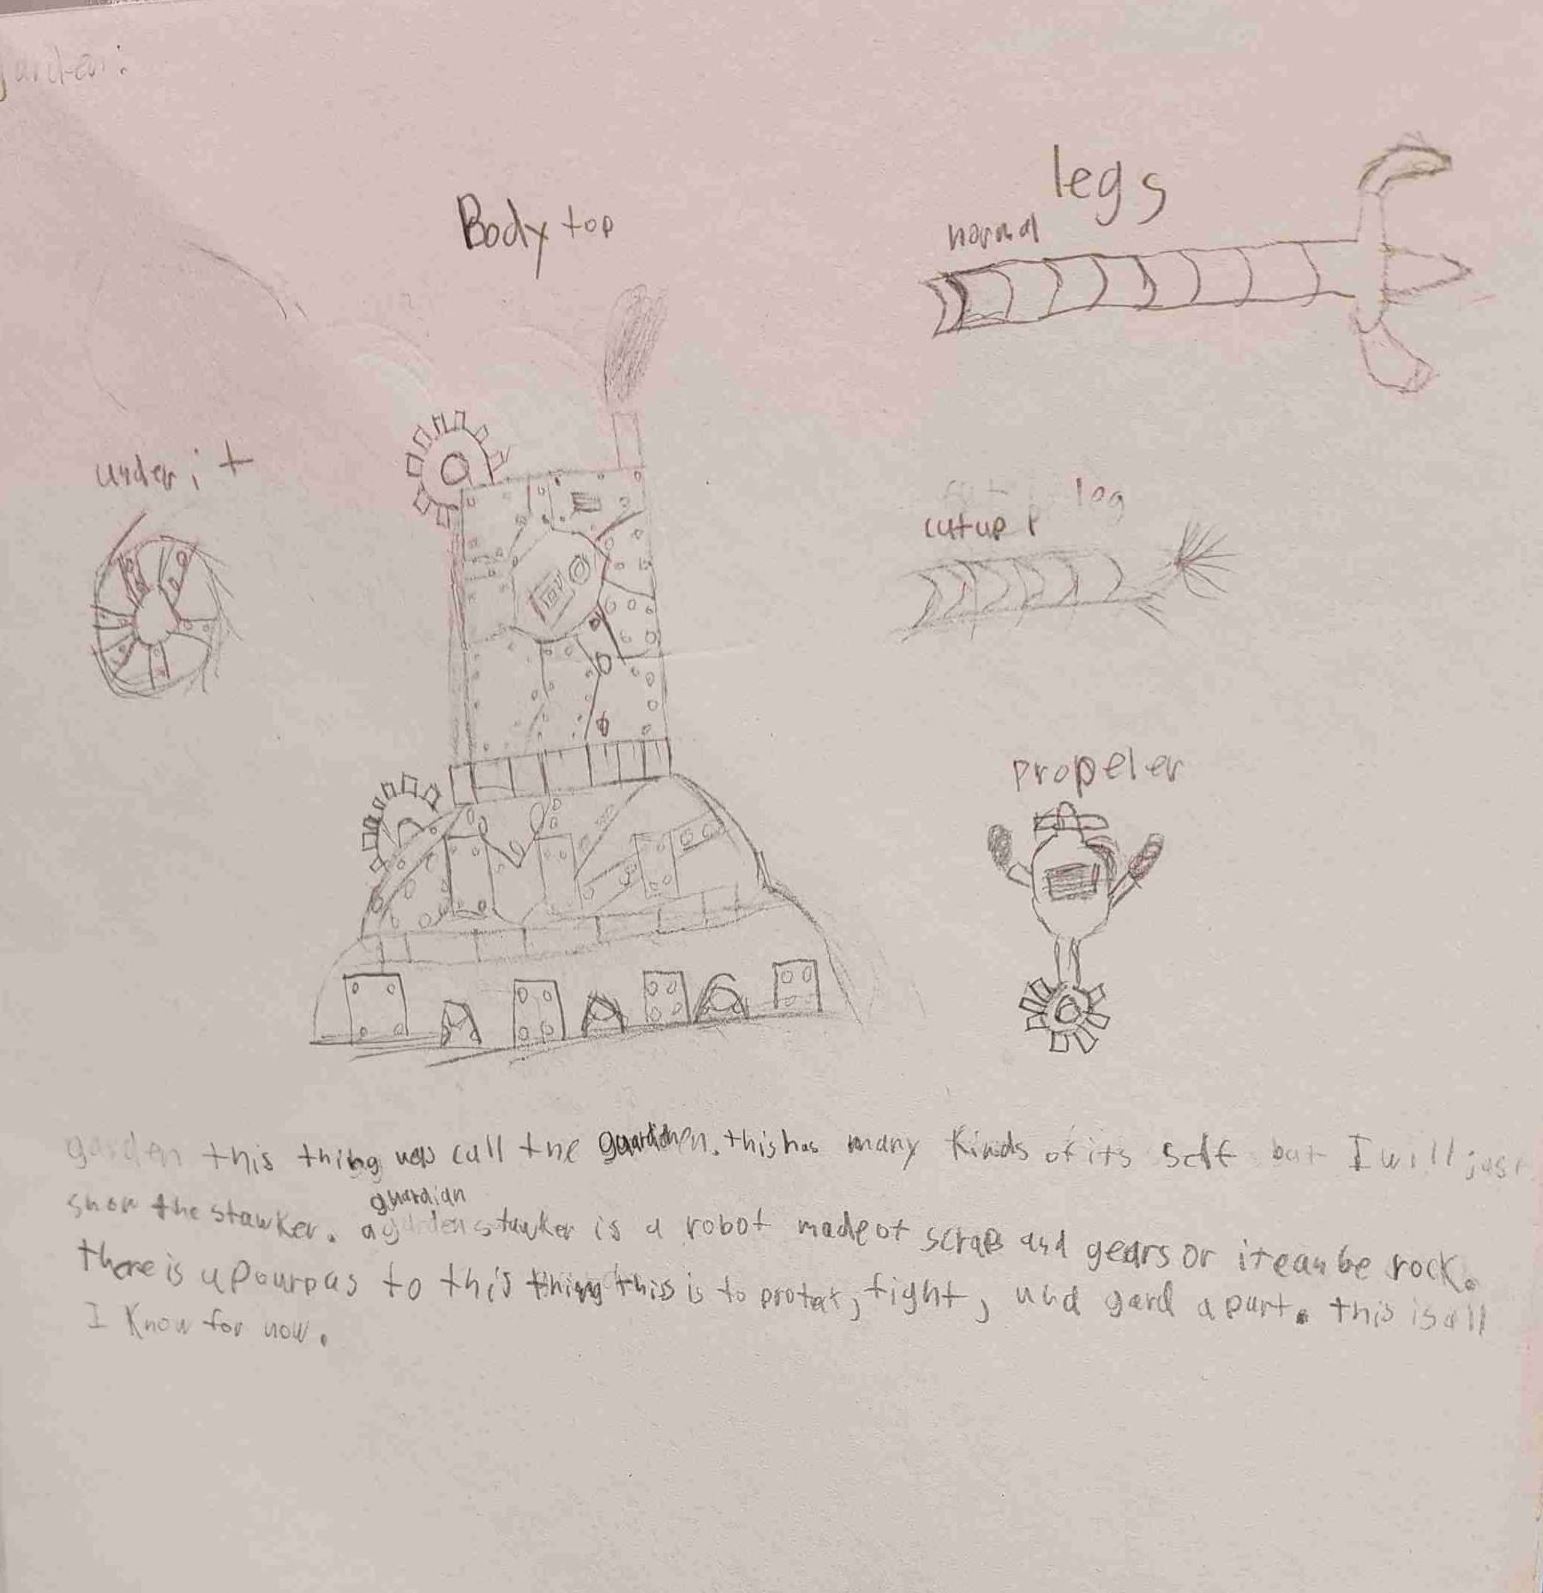 garden:
Body top
legs
normal
under it
leg
cut up
propeler
garden this thing was call the guardian. this has many kinds of its self but I will just
show the stawker. a guardian stawker is a robot made of scraps and gears or it can be rock.
there is a pourpas to this thing this is to protect, fight, and gard a part. this is all
I know for now.